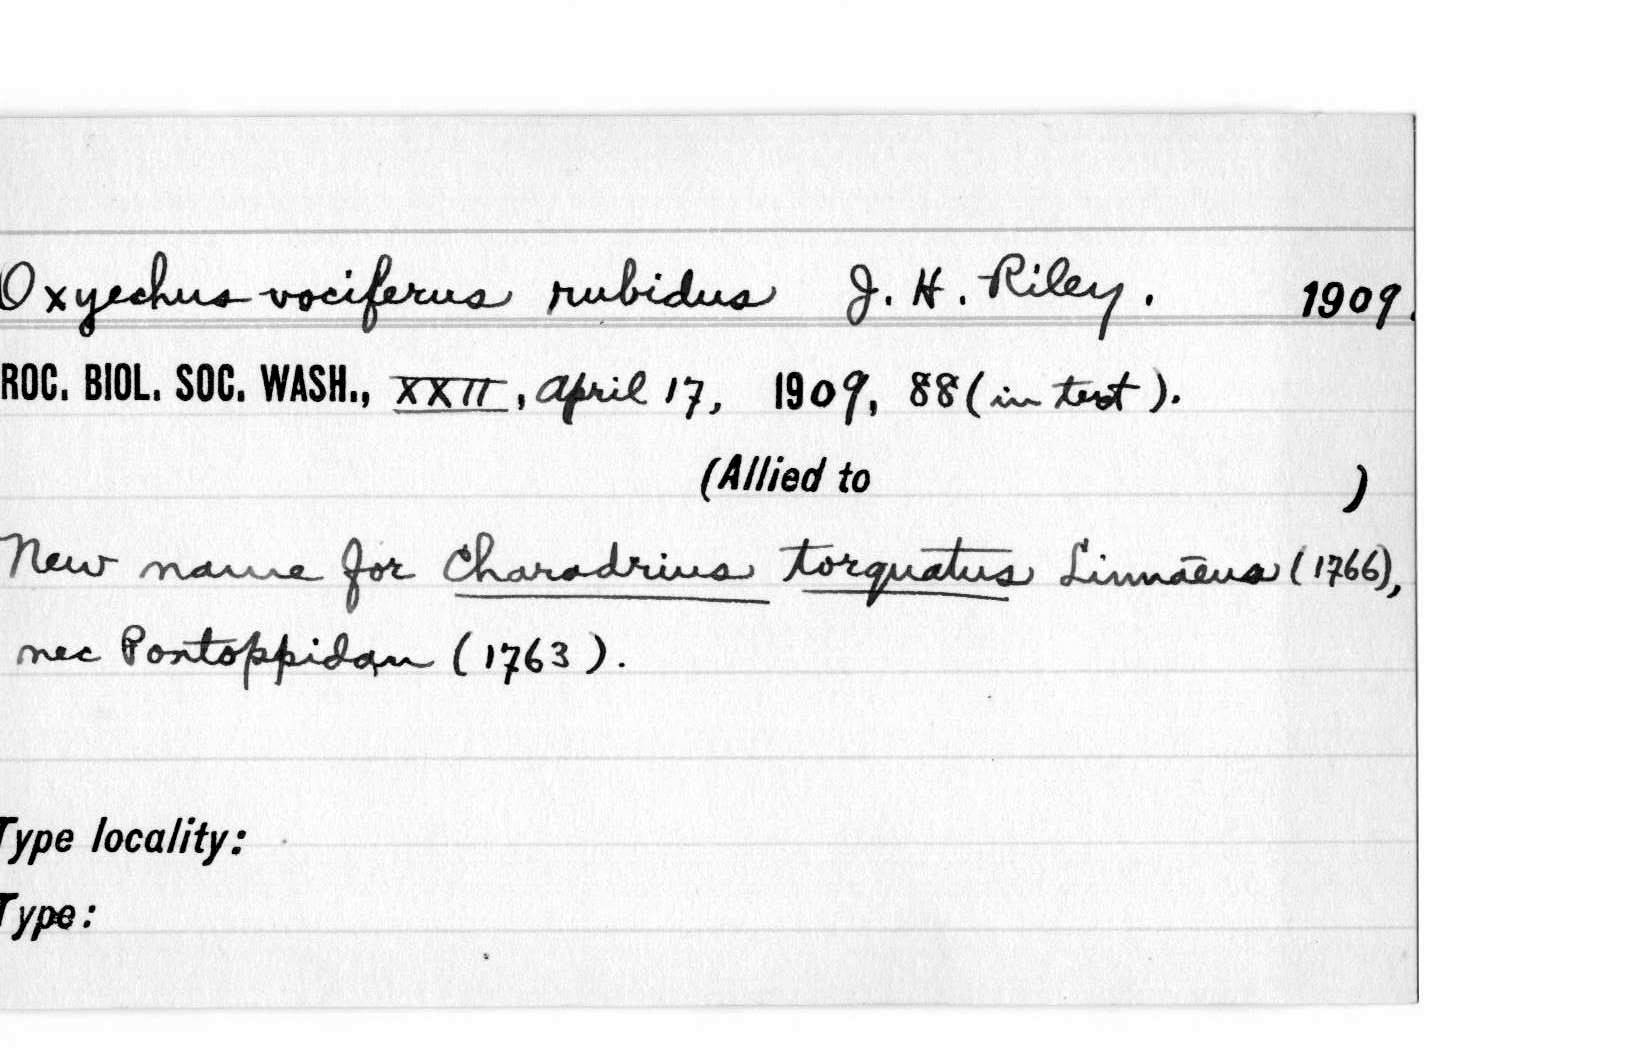 Oxyechus vociferus rubidus J. H. Riley. 1909.
ROC. BIOL. SOC. WASH., XXII, April 17, 1909, 88 (in text).
(Allied to )
New name for Charadrius torquatus Linnaeus (1766),
nec Pontoppidan (1763).
Type locality:
Type: